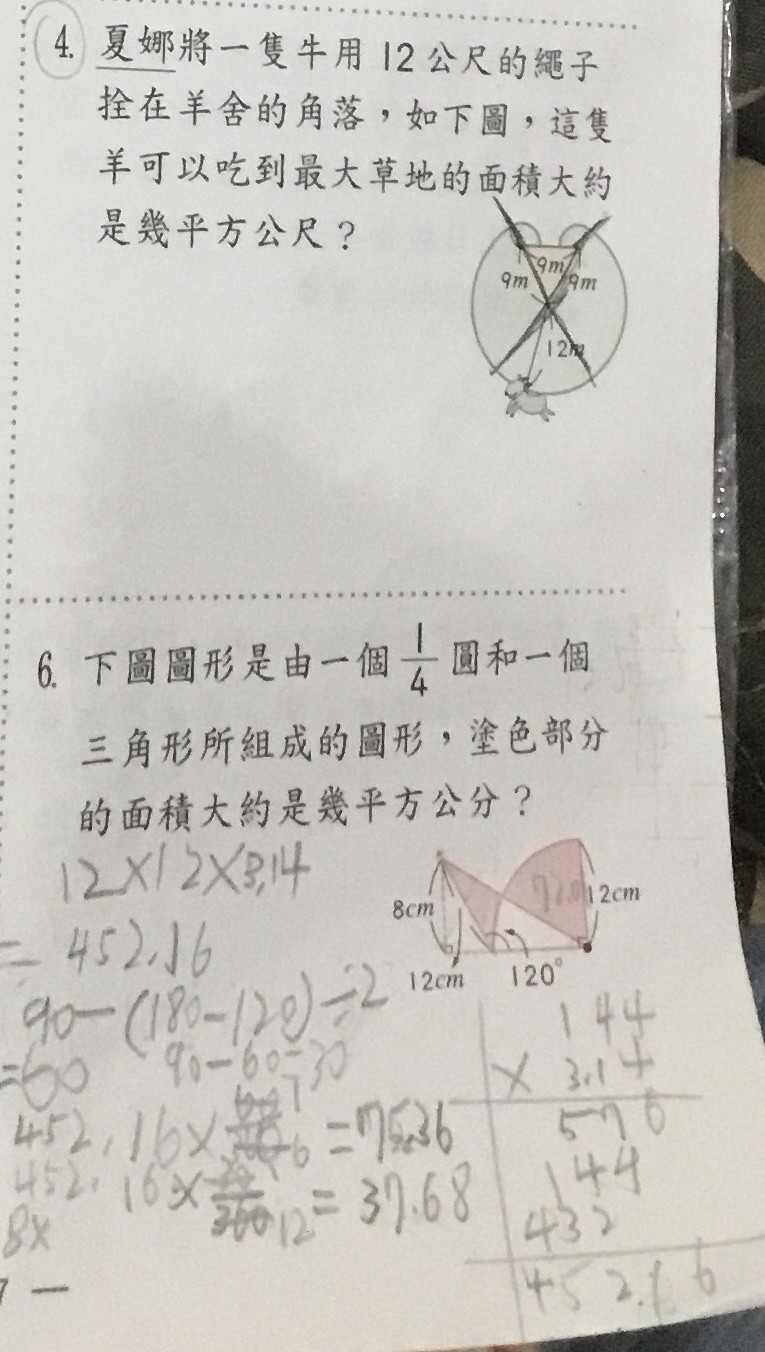 4. 夏娜將一隻牛用12公尺的繩子
拴在羊舍的角落，如下圖，這隻
羊可以吃到最大草地的面積大約
是幾平方公尺？
9m
9m
9m
12m
6. 下圖圖形是由一個1/4圓和一個
三角形所組成的圖形，塗色部分
的面積大約是幾平方公分？
12×12×3.14
= 452.16
90-(180-120)÷2
=60 90-60=30
452.16× =75.36
452.16× =37.68
8×
8cm
12cm
12cm
120°
144
× 3.14
576
144
432
452.16
7 —